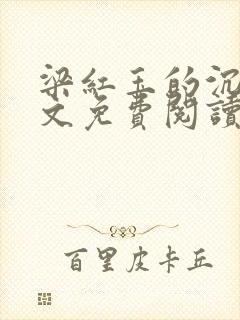 梁紅玉的沉
文免費閱讀
百里皮卡丘